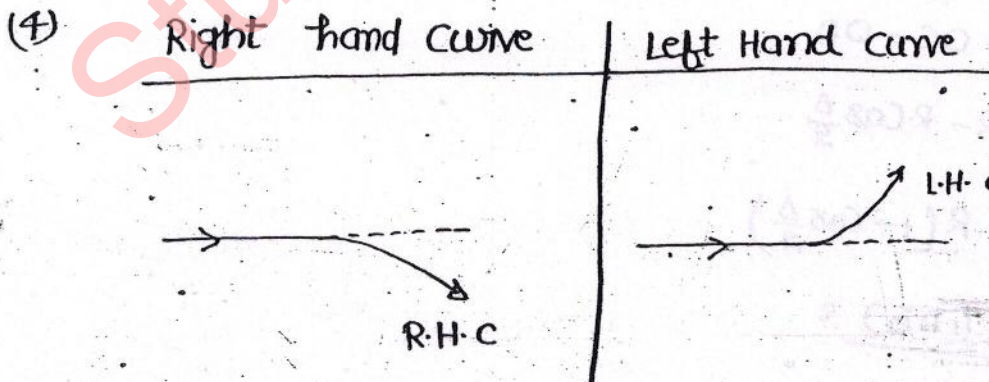 (4) Right hand curve Left Hand curve
L.H.
R.H.C